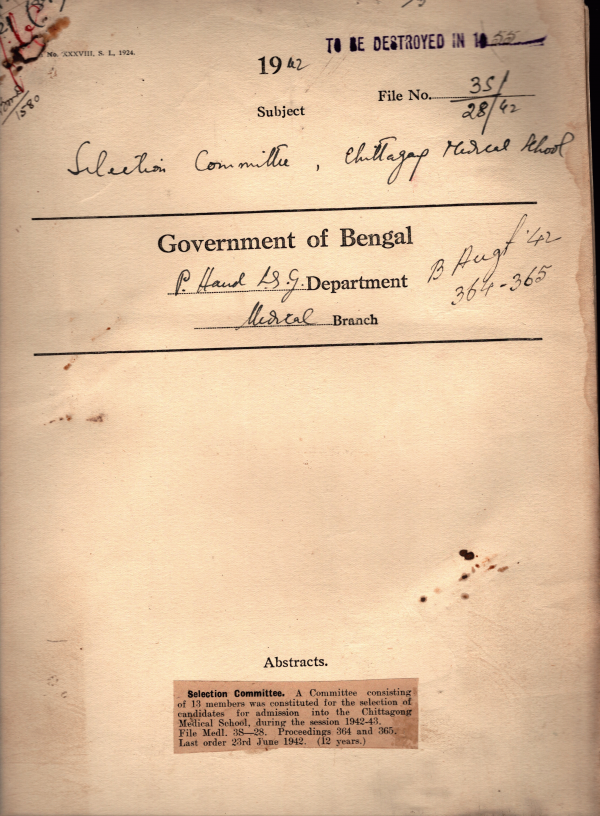 No. XXXVIII, S. I., 1924.
1580
TO BE DESTROYED IN 1955
1942
File No. 3S/
28/42
Subject
Selection Committee, Chittagong Medical School
Government of Bengal
P. H. and L. S. G. Department
Medical Branch
B Augt '42
364-365
Abstracts.
Selection Committee. A Committee consisting
of 13 members was constituted for the selection of
candidates for admission into the Chittagong
Medical School, during the session 1942-43.
File Medl. 3S—28. Proceedings 364 and 365.
Last order 23rd June 1942. (12 years.)